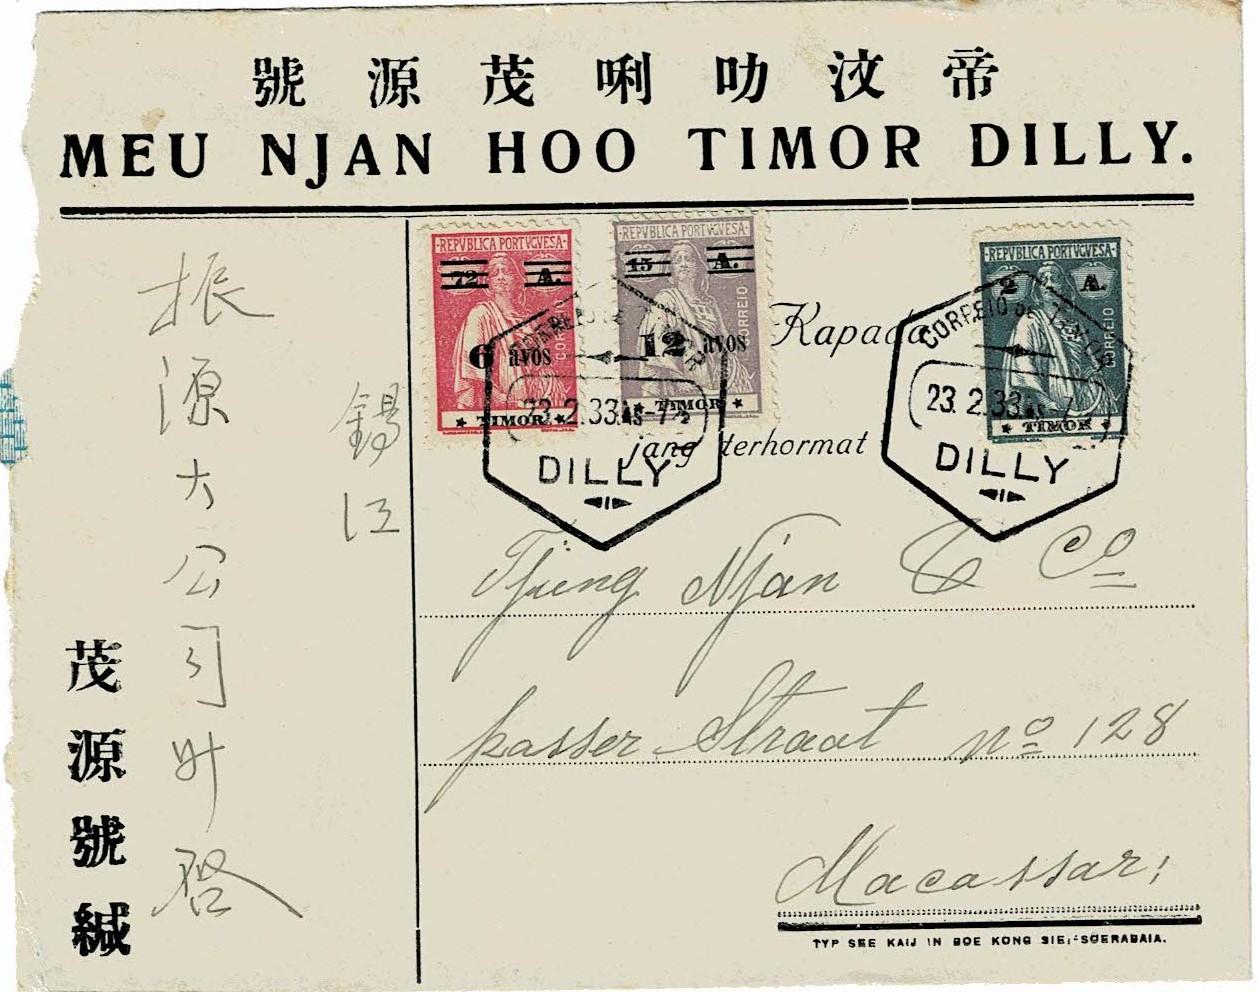 號源茂唎叻汶帝
MEU NJAN HOO TIMOR DILLY.
REPVBLICA PORTVGVESA
72 A.
6 avos
CORREIO
TIMOR
REPVBLICA PORTVGVESA
15 A.
12 avos
CORREIO
TIMOR
REPVBLICA PORTVGVESA
2 A.
CORREIO
TIMOR
CORREIO DE TIMOR
23.2.33
DILLY
CORREIO DE TIMOR
23.2.33
DILLY
Kapada
jang terhormat
Tjieng Njan & Co
passer Straat no 128
Macassar
TYP SEE KAIJ IN BOE KONG SIE, SOERABAIA.
錫江
振源大公司
啓
茂源號緘